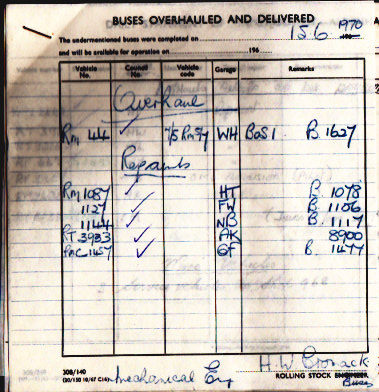 BUSES OVERHAULED AND DELIVERED
The undermentioned buses were completed on 15 6 1970
and will be available for operation on 196
Vehicle No. Council No. Vehicle code Garage Remarks
Overhaul
RM 44 ✓ 7/5 RM 5/7 WH BoS 1 B. 1627
Repaints
RM 1087 ✓ HT B. 1078
1127 ✓ FW B. 1106
1144 ✓ NB B. 1117
RT 3933 ✓ AK 8900
RMC 1457 ✓ B. 1477
H.W. Cromack
308/140
(20/150 10/67 C16) Mechanical Eng ROLLING STOCK ENGINEER
Buses